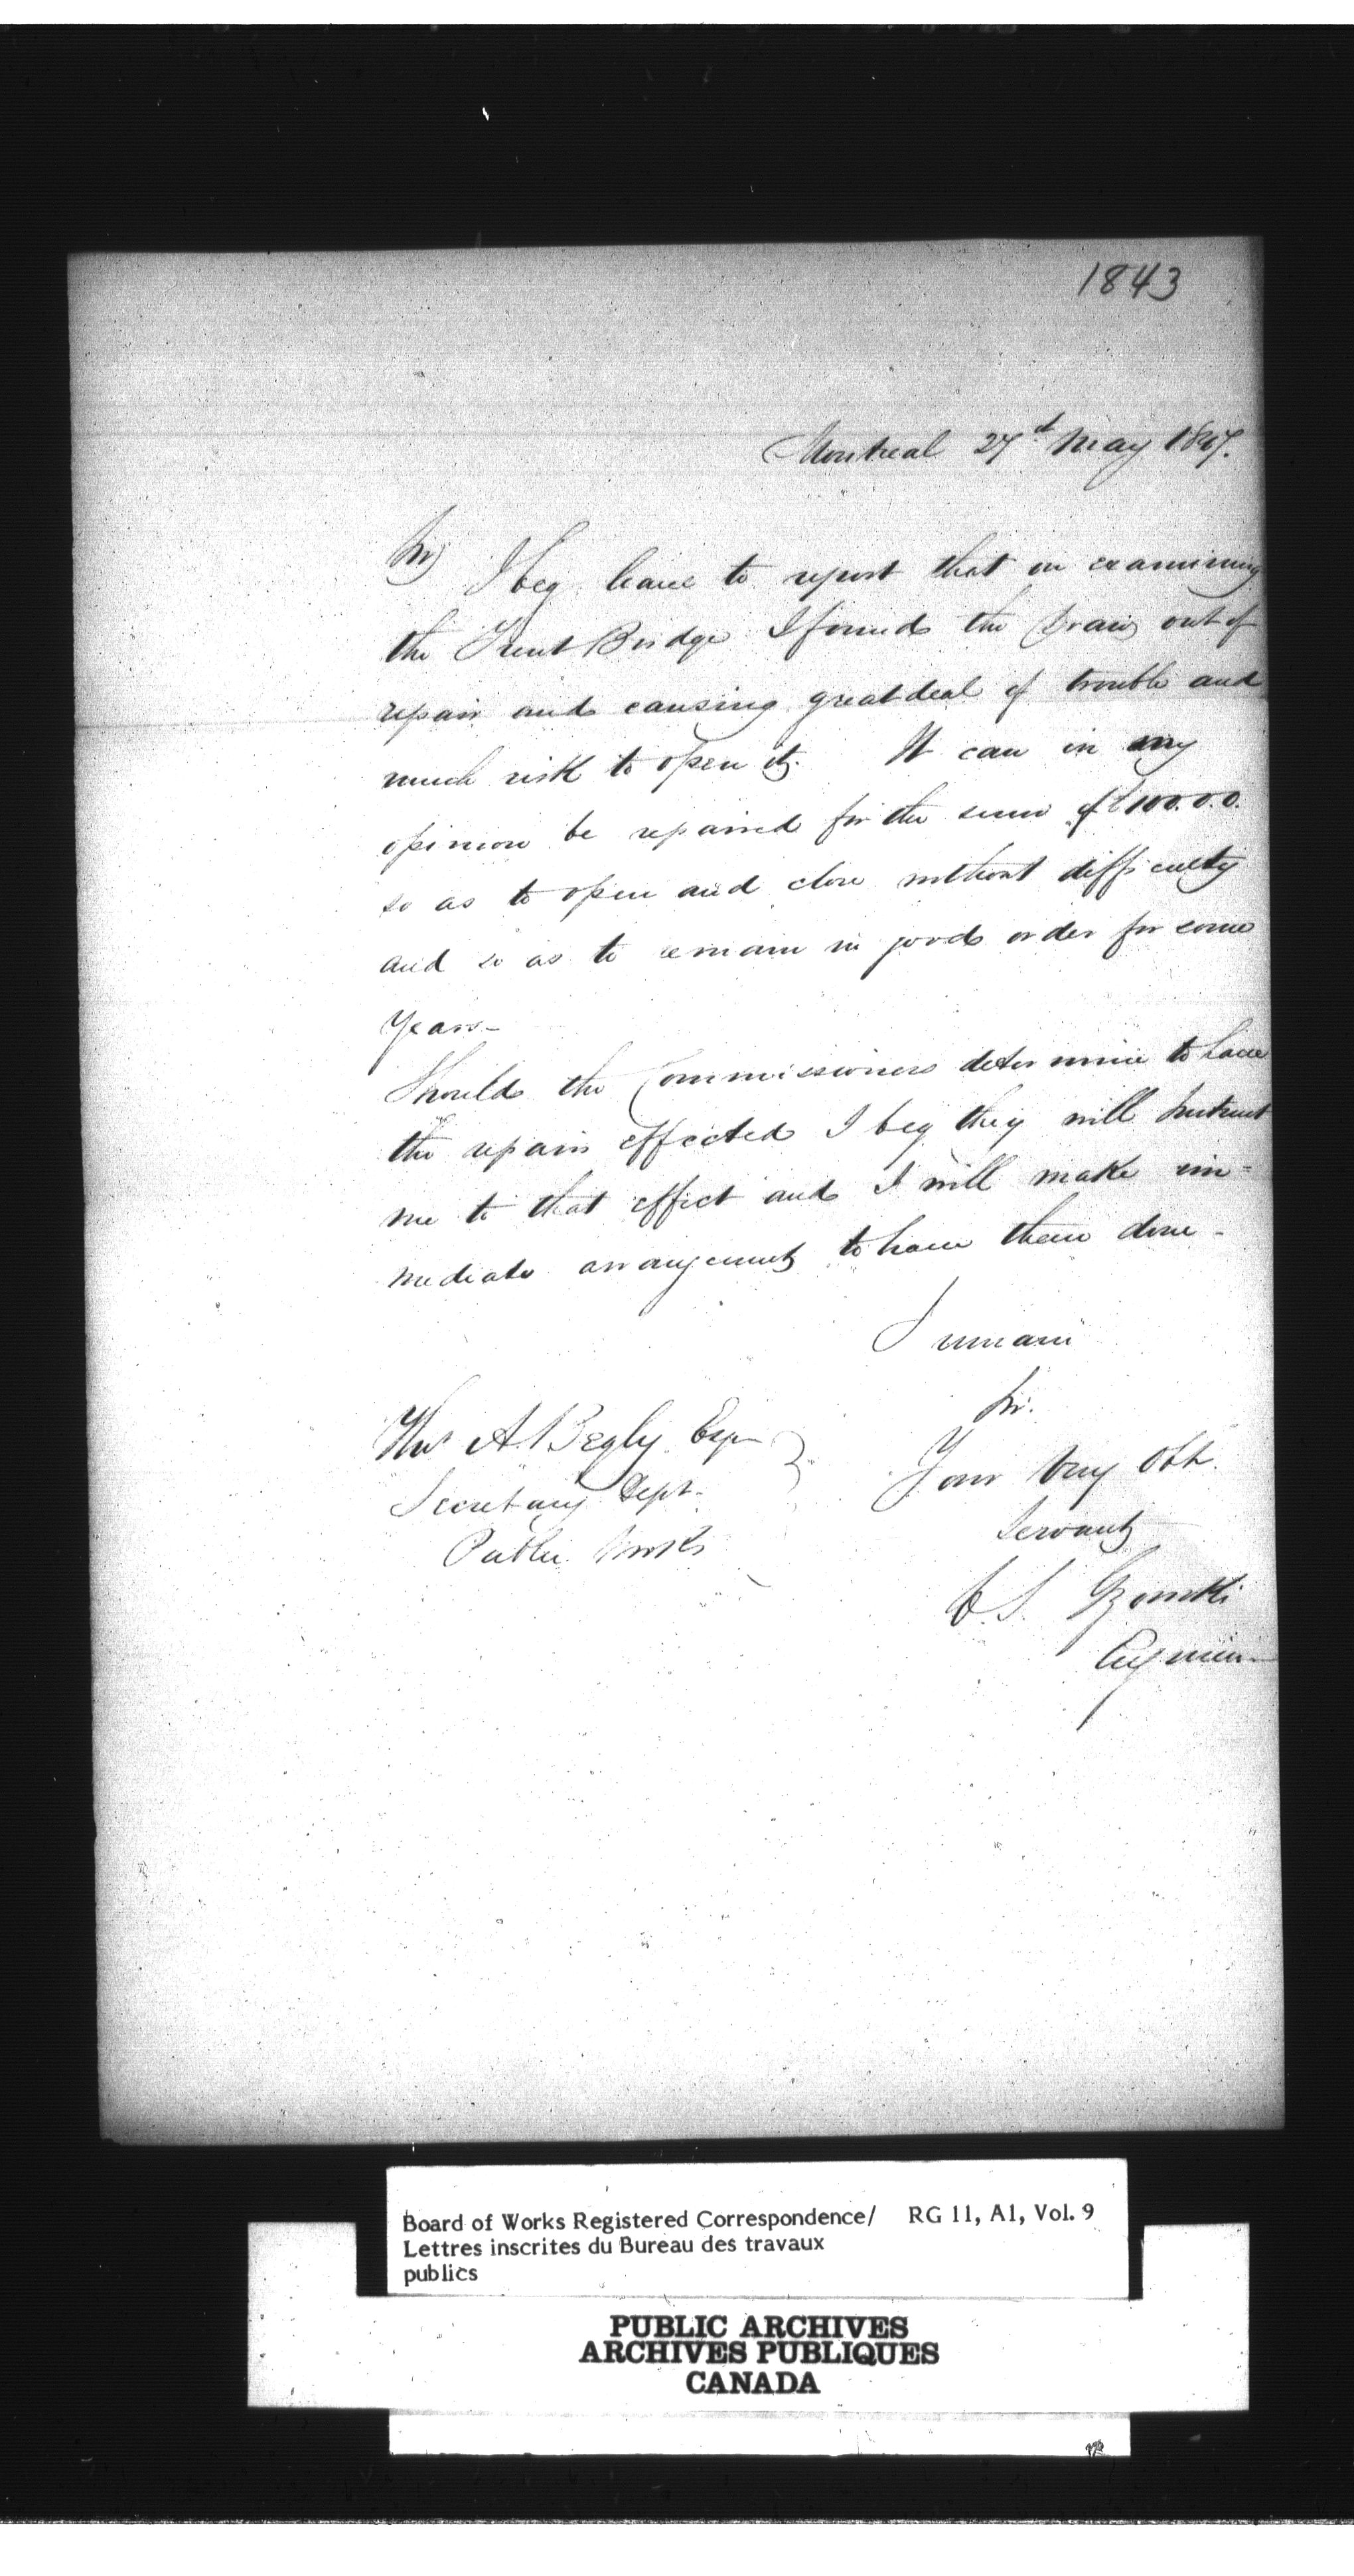 1843
Montreal 27th May 1847.
Sir,
I beg leave to report that on examining
the Trent Bridge I found the Draw out of
repair and causing great deal of trouble and
much risk to open it. It can in my
opinion be repaired for the sum of £100.0.0.
so as to open and close without difficulty
and so as to remain in good order for some
Years -
Should the Commissioners determine to have
the repairs effected I beg they will instruct
me to that effect and I will make im=
mediate arrangements to have them done -
I remain
Sir.
Your Very Obt.
Servant
C. S. Gzowski
Engineer
Thos A. Begly Esqr
Secretary Dept.
Public Works
Board of Works Registered Correspondence/ RG 11, A1, Vol. 9
Lettres inscrites du Bureau des travaux
publics
PUBLIC ARCHIVES
ARCHIVES PUBLIQUES
CANADA